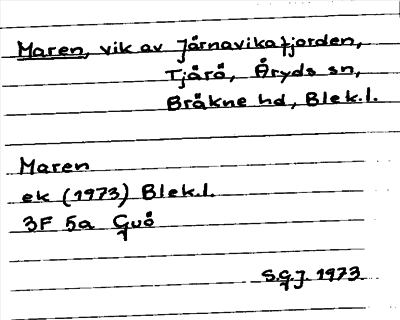 Maren, vik av Järnavikafjorden,
Tjärö, Åryds sn,
Bräkne hd, Blek.l.
Maren
ek (1973) Blek.l.
3F 5a Guö
S.G.J. 1973